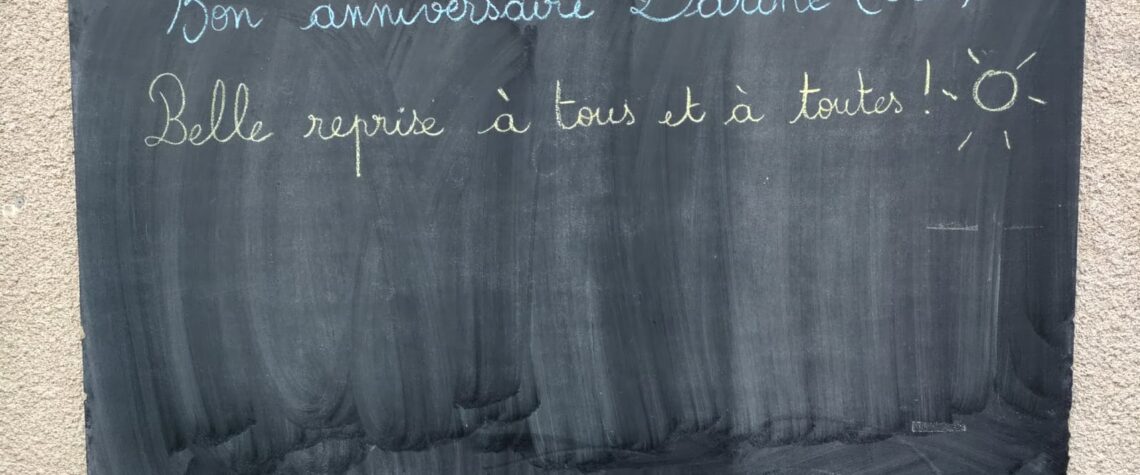 Bon anniversaire
Belle reprise à tous et à toutes !